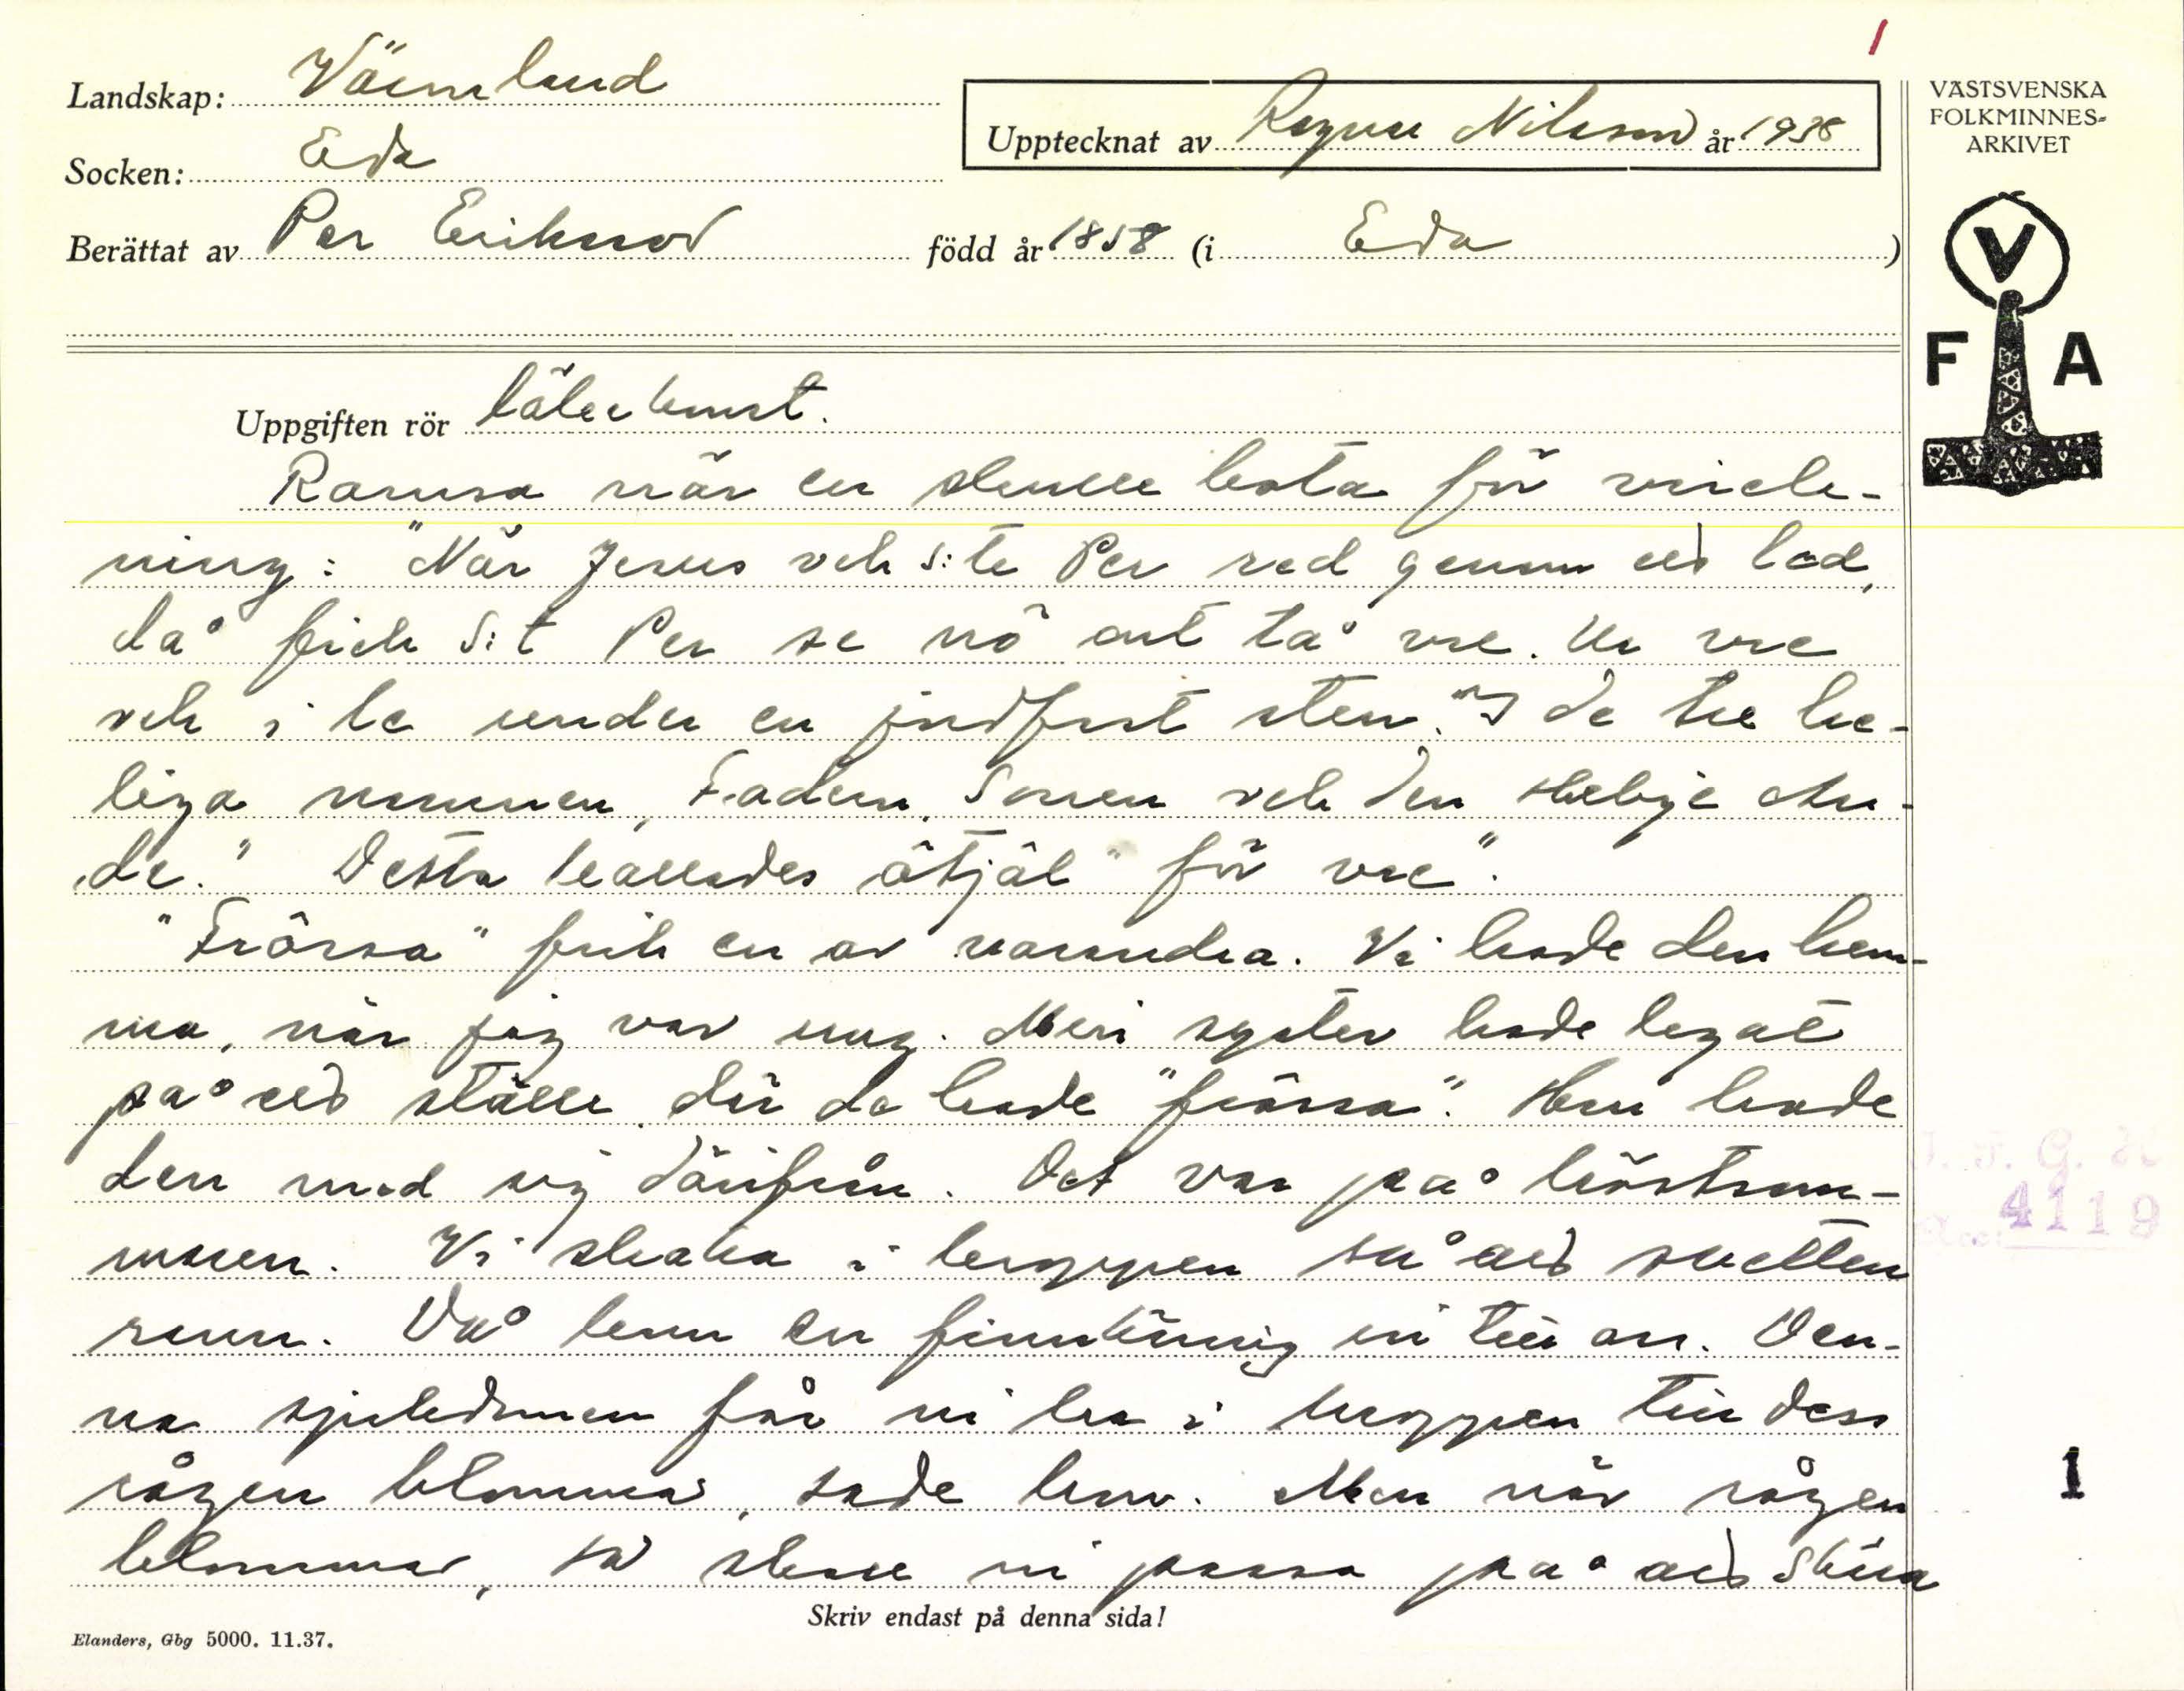 1
Landskap: Värmland
Socken: Eda
Berättat av Per Eriksson född år 1858 (i Eda)
Upptecknat av Ragnar Nilsson år 1938
VÄSTSVENSKA
FOLKMINNES-
ARKIVET
V
F A
Uppgiften rör läkekunst.
Ramsa när en skulle bota för vrick-
ning: "Når Jesus och S:te Per red genom ed led,
då fick S:t Per se nô ont tå vre. Ur vre
och i le under en jordfast sten." I de tre he-
liga namnen, Fadern, Sonen och den Helige An-
de." Detta kallades åtjäl "för vre".
"Frôssa" fick en av varandra. Vi hade den hem-
ma, när jag var ung. Min syster hade legat
på ed ställe där de hade "frôssa". Hon hade
den med sig därifrån. Det var på höstsom-
maren. Vi skaka i kroppen så ad svetten
rann. Då kom en finnkäring in till oss. Den-
na sjukdomen får ni ha i kroppen till dess
rågen blommar, sade hon. Men när rågen
blommar, så skall ni passa på ad skära
I. F. G. H.
Acc: 4119
1
Skriv endast på denna sida!
Elanders, Gbg 5000. 11.37.